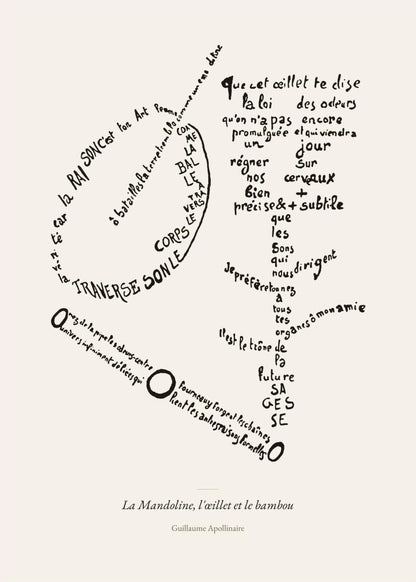 ô batailles la terre tremble comme une mandoline
COM
ME
LA
BAL
LE
À TRA
VERS
LE
CORPS
LE SON
TRAVERSE
la vérité
car la RAISON c'est ton Art Femme
Que cet œillet te dise
la loi des odeurs
qu'on n'a pas encore
promulguée et qui viendra
un jour
régner sur
nos cerveaux
bien +
précise & + subtile
que
les
sons
qui
nous dirigent
Je préfère ton nez
à
tous
tes
organes ô mon amie
Il est le trône de
la
future
SA
GES
SE
O nez de la pipe les odeurs-centre
O fourneau y forgent les chaînes
univers infiniment déliées qui
lient les autres raisons formelles
O
La Mandoline, l'œillet et le bambou
Guillaume Apollinaire